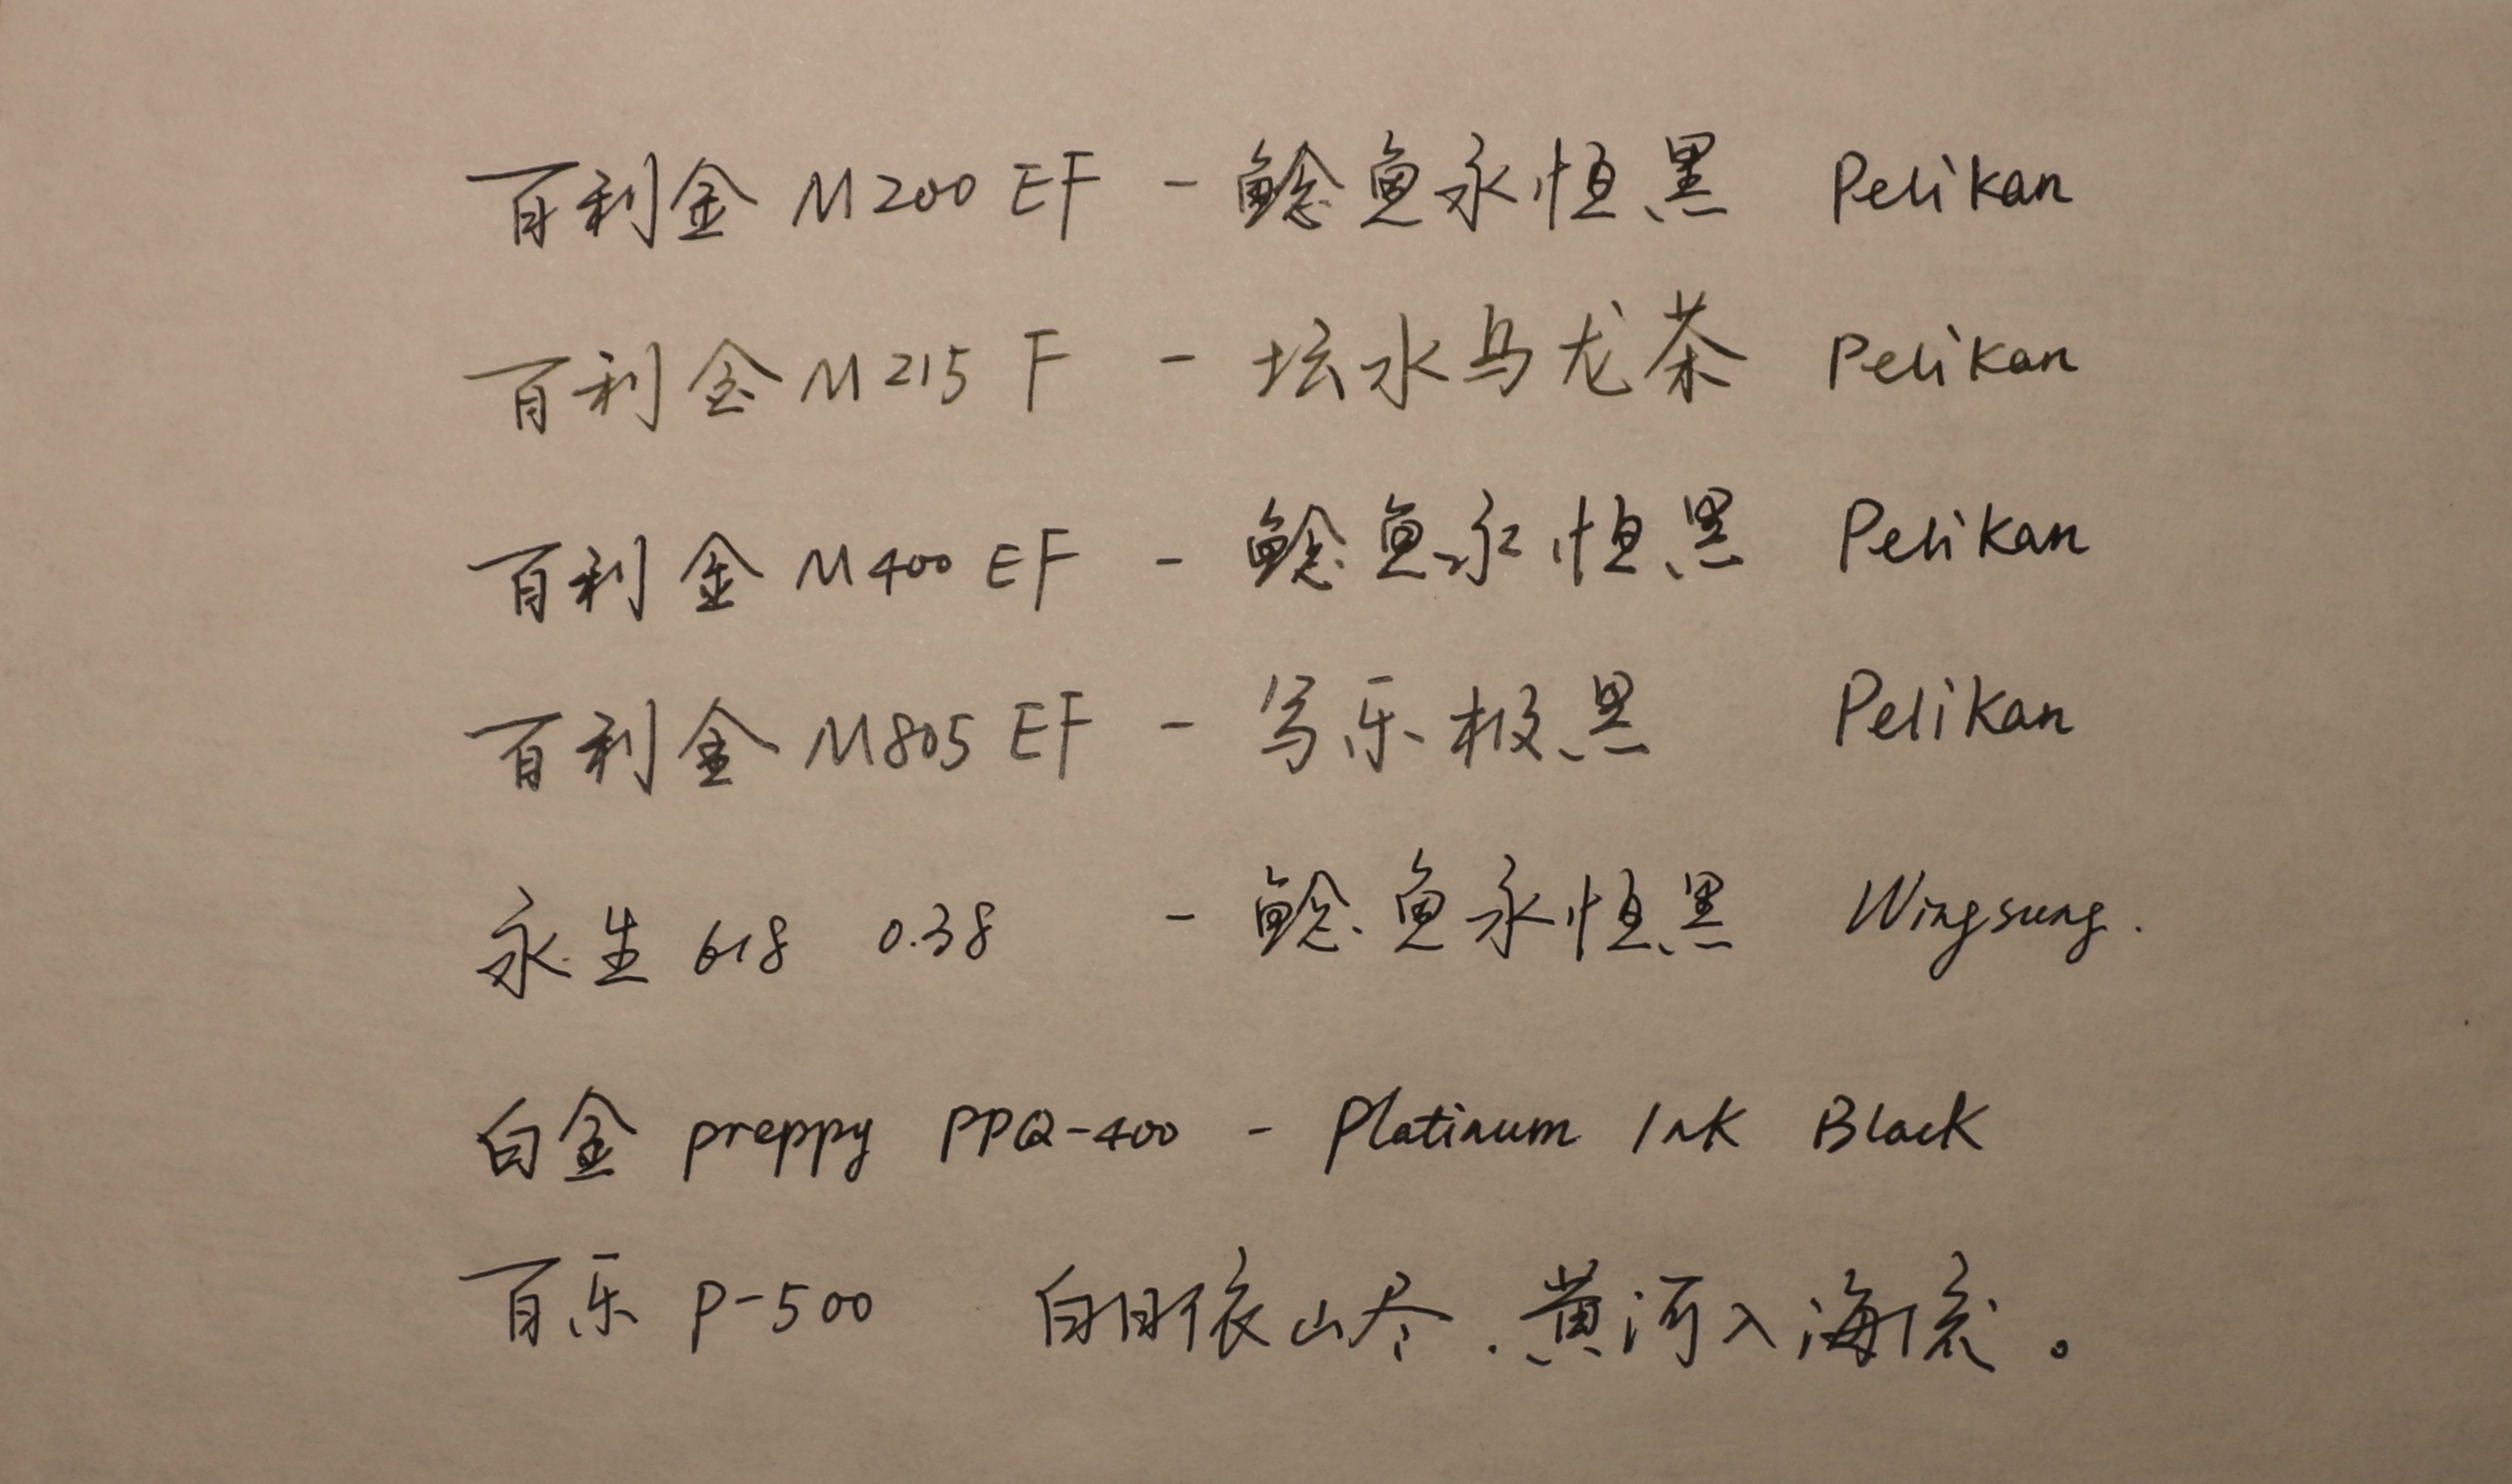 百利金 M200 EF - 鲶鱼永恒黑 Pelikan
百利金 M215 F - 坛水乌龙茶 Pelikan
百利金 M400 EF - 鲶鱼永恒黑 Pelikan
百利金 M805 EF - 写乐极黑 Pelikan
永生 618 0.38 - 鲶鱼永恒黑 Wingsung.
白金 preppy PPQ-400 - Platinum Ink Black
百乐 P-500 白日依山尽.黄河入海流。